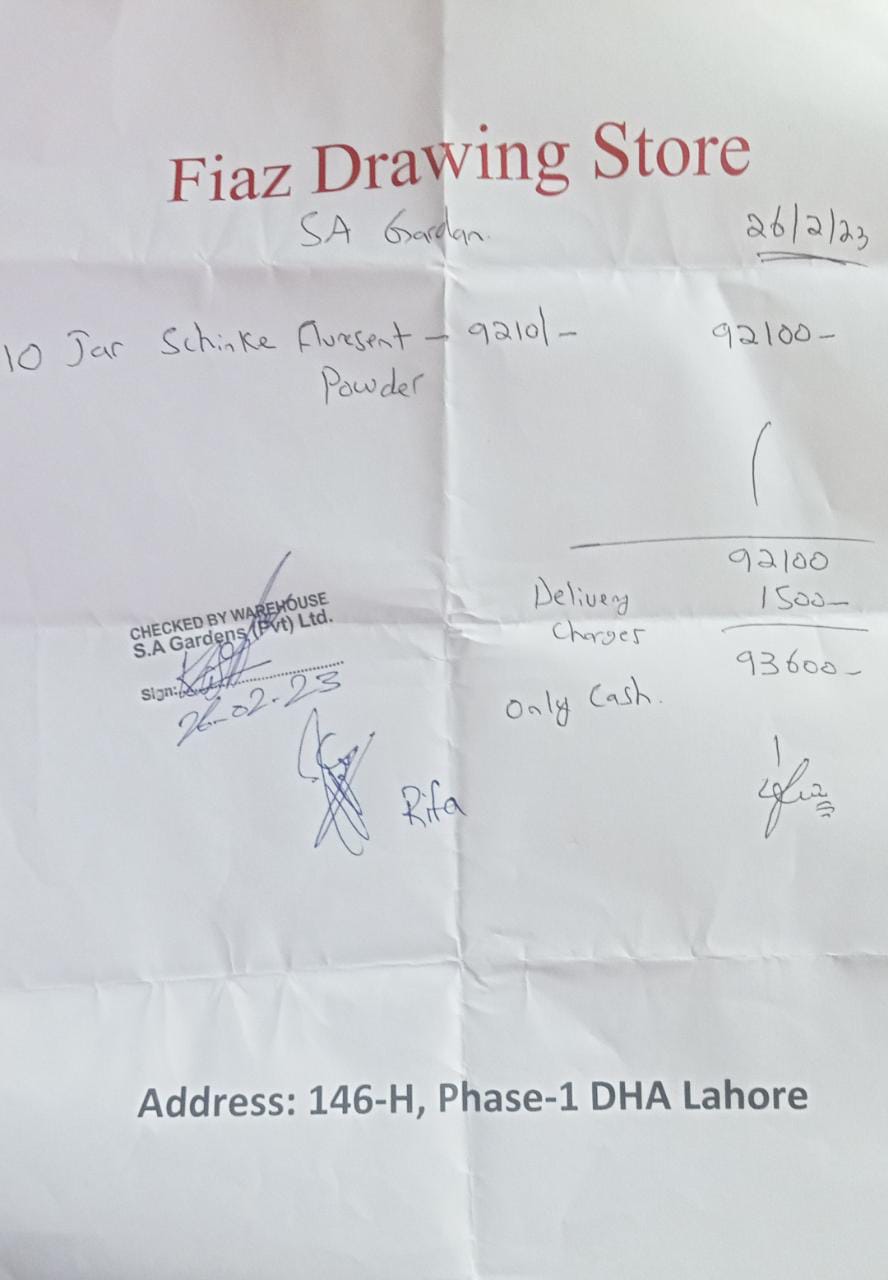 Fiaz Drawing Store
SA Gardan.
26/2/23
10 Jar Schinke Fluresent – 9210/– 92100–
Powder
92100
Delivery 1500–
Charges
93600–
Only Cash.
CHECKED BY WAREHOUSE
S.A Gardens (Pvt) Ltd.
Sign:
26-02-23
Rifa
Address: 146-H, Phase-1 DHA Lahore